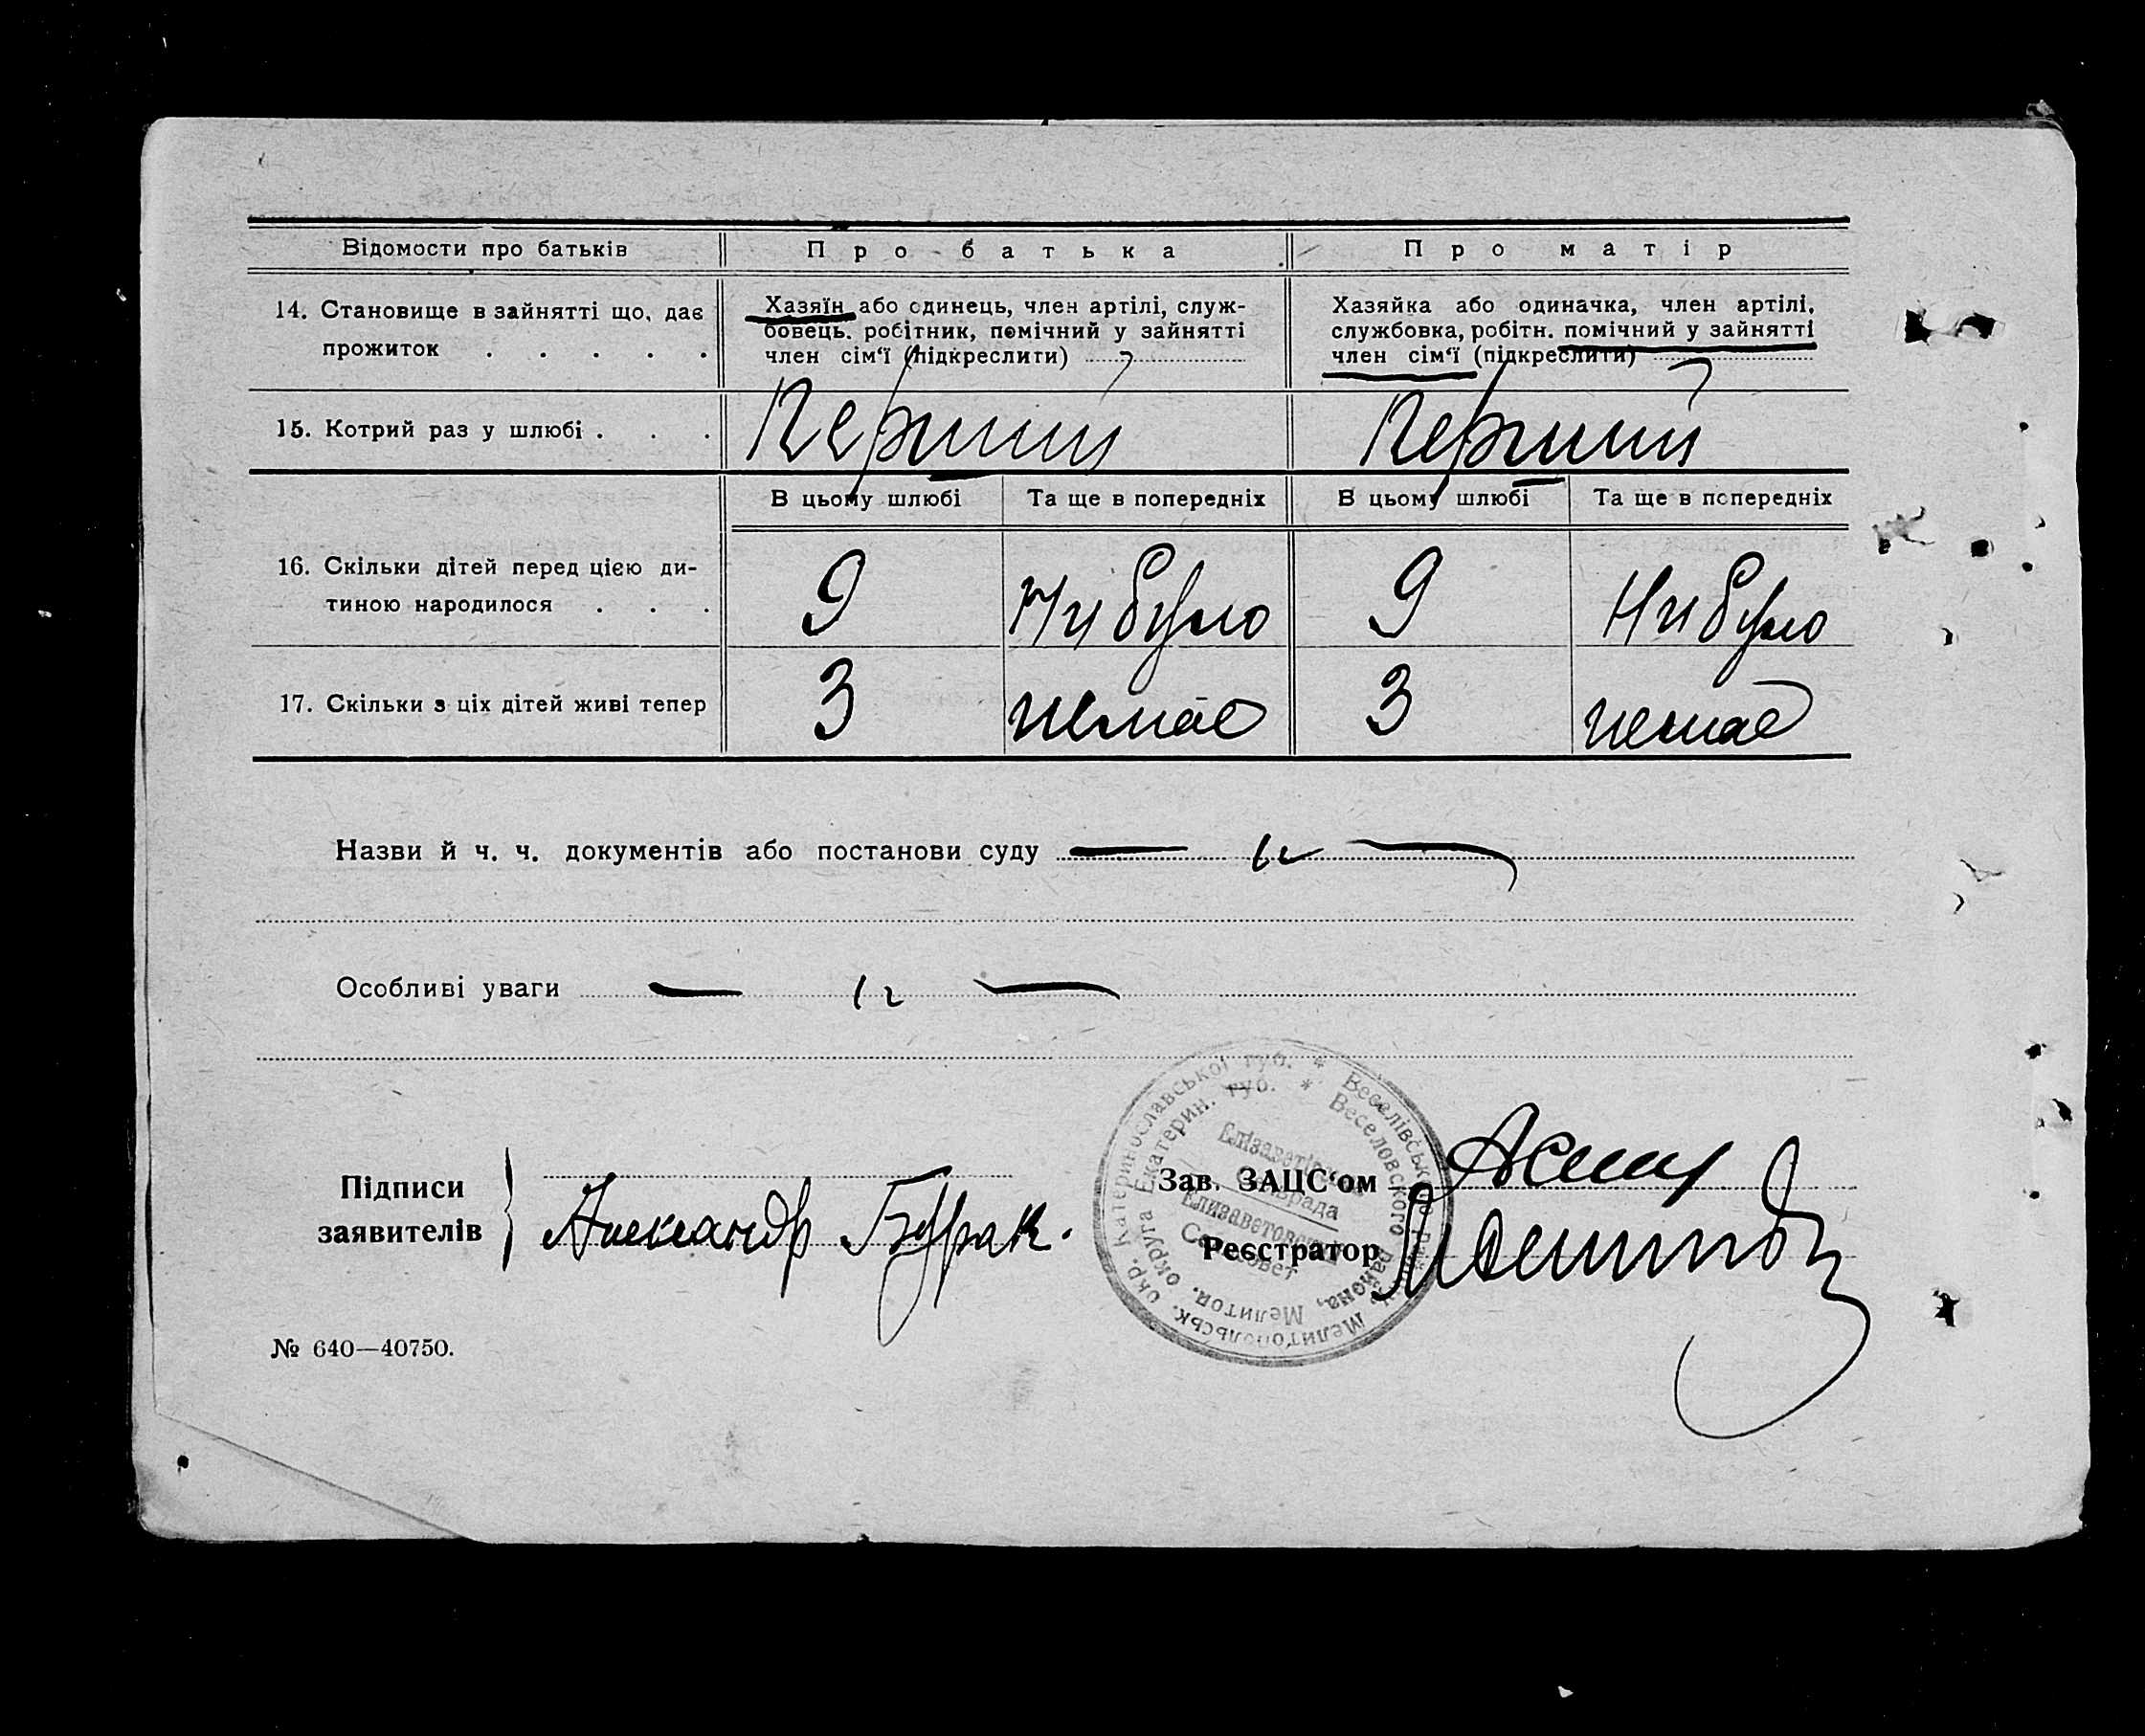 Відомости про батьків Про батька Про матір
14. Становище в зайнятті що, дає
прожиток . . . . .
Хазяїн або одинець, член артілі, служ-
бовець. робітник, помічний у зайнятті
член сім'ї (підкреслити)
Хазяйка або одиначка, член артілі,
службовка, робітн. помічний у зайнятті
член сім'ї (підкреслити)
15. Котрий раз у шлюбі . . . Перший Перший
В цьому шлюбі Та ще в попередніх В цьому шлюбі Та ще в попередніх
16. Скільки дітей перед цією ди-
тиною народилося . . .
9 Ни було 9 Ни було
17. Скільки з ціх дітей живі тепер 3 немає 3 немає
Назви й ч. ч. документів або постанови суду
Особливі уваги
Підписи
заявителів
Александр Бурак.
Зав. ЗАЦС'ом
Реєстратор
окр. Катеринославської губ. * Веселівського район. Мелитопольськ.
округа Екатерин. губ. * Веселовского района, Мелитоп.
Сельсовет
№ 640—40750.